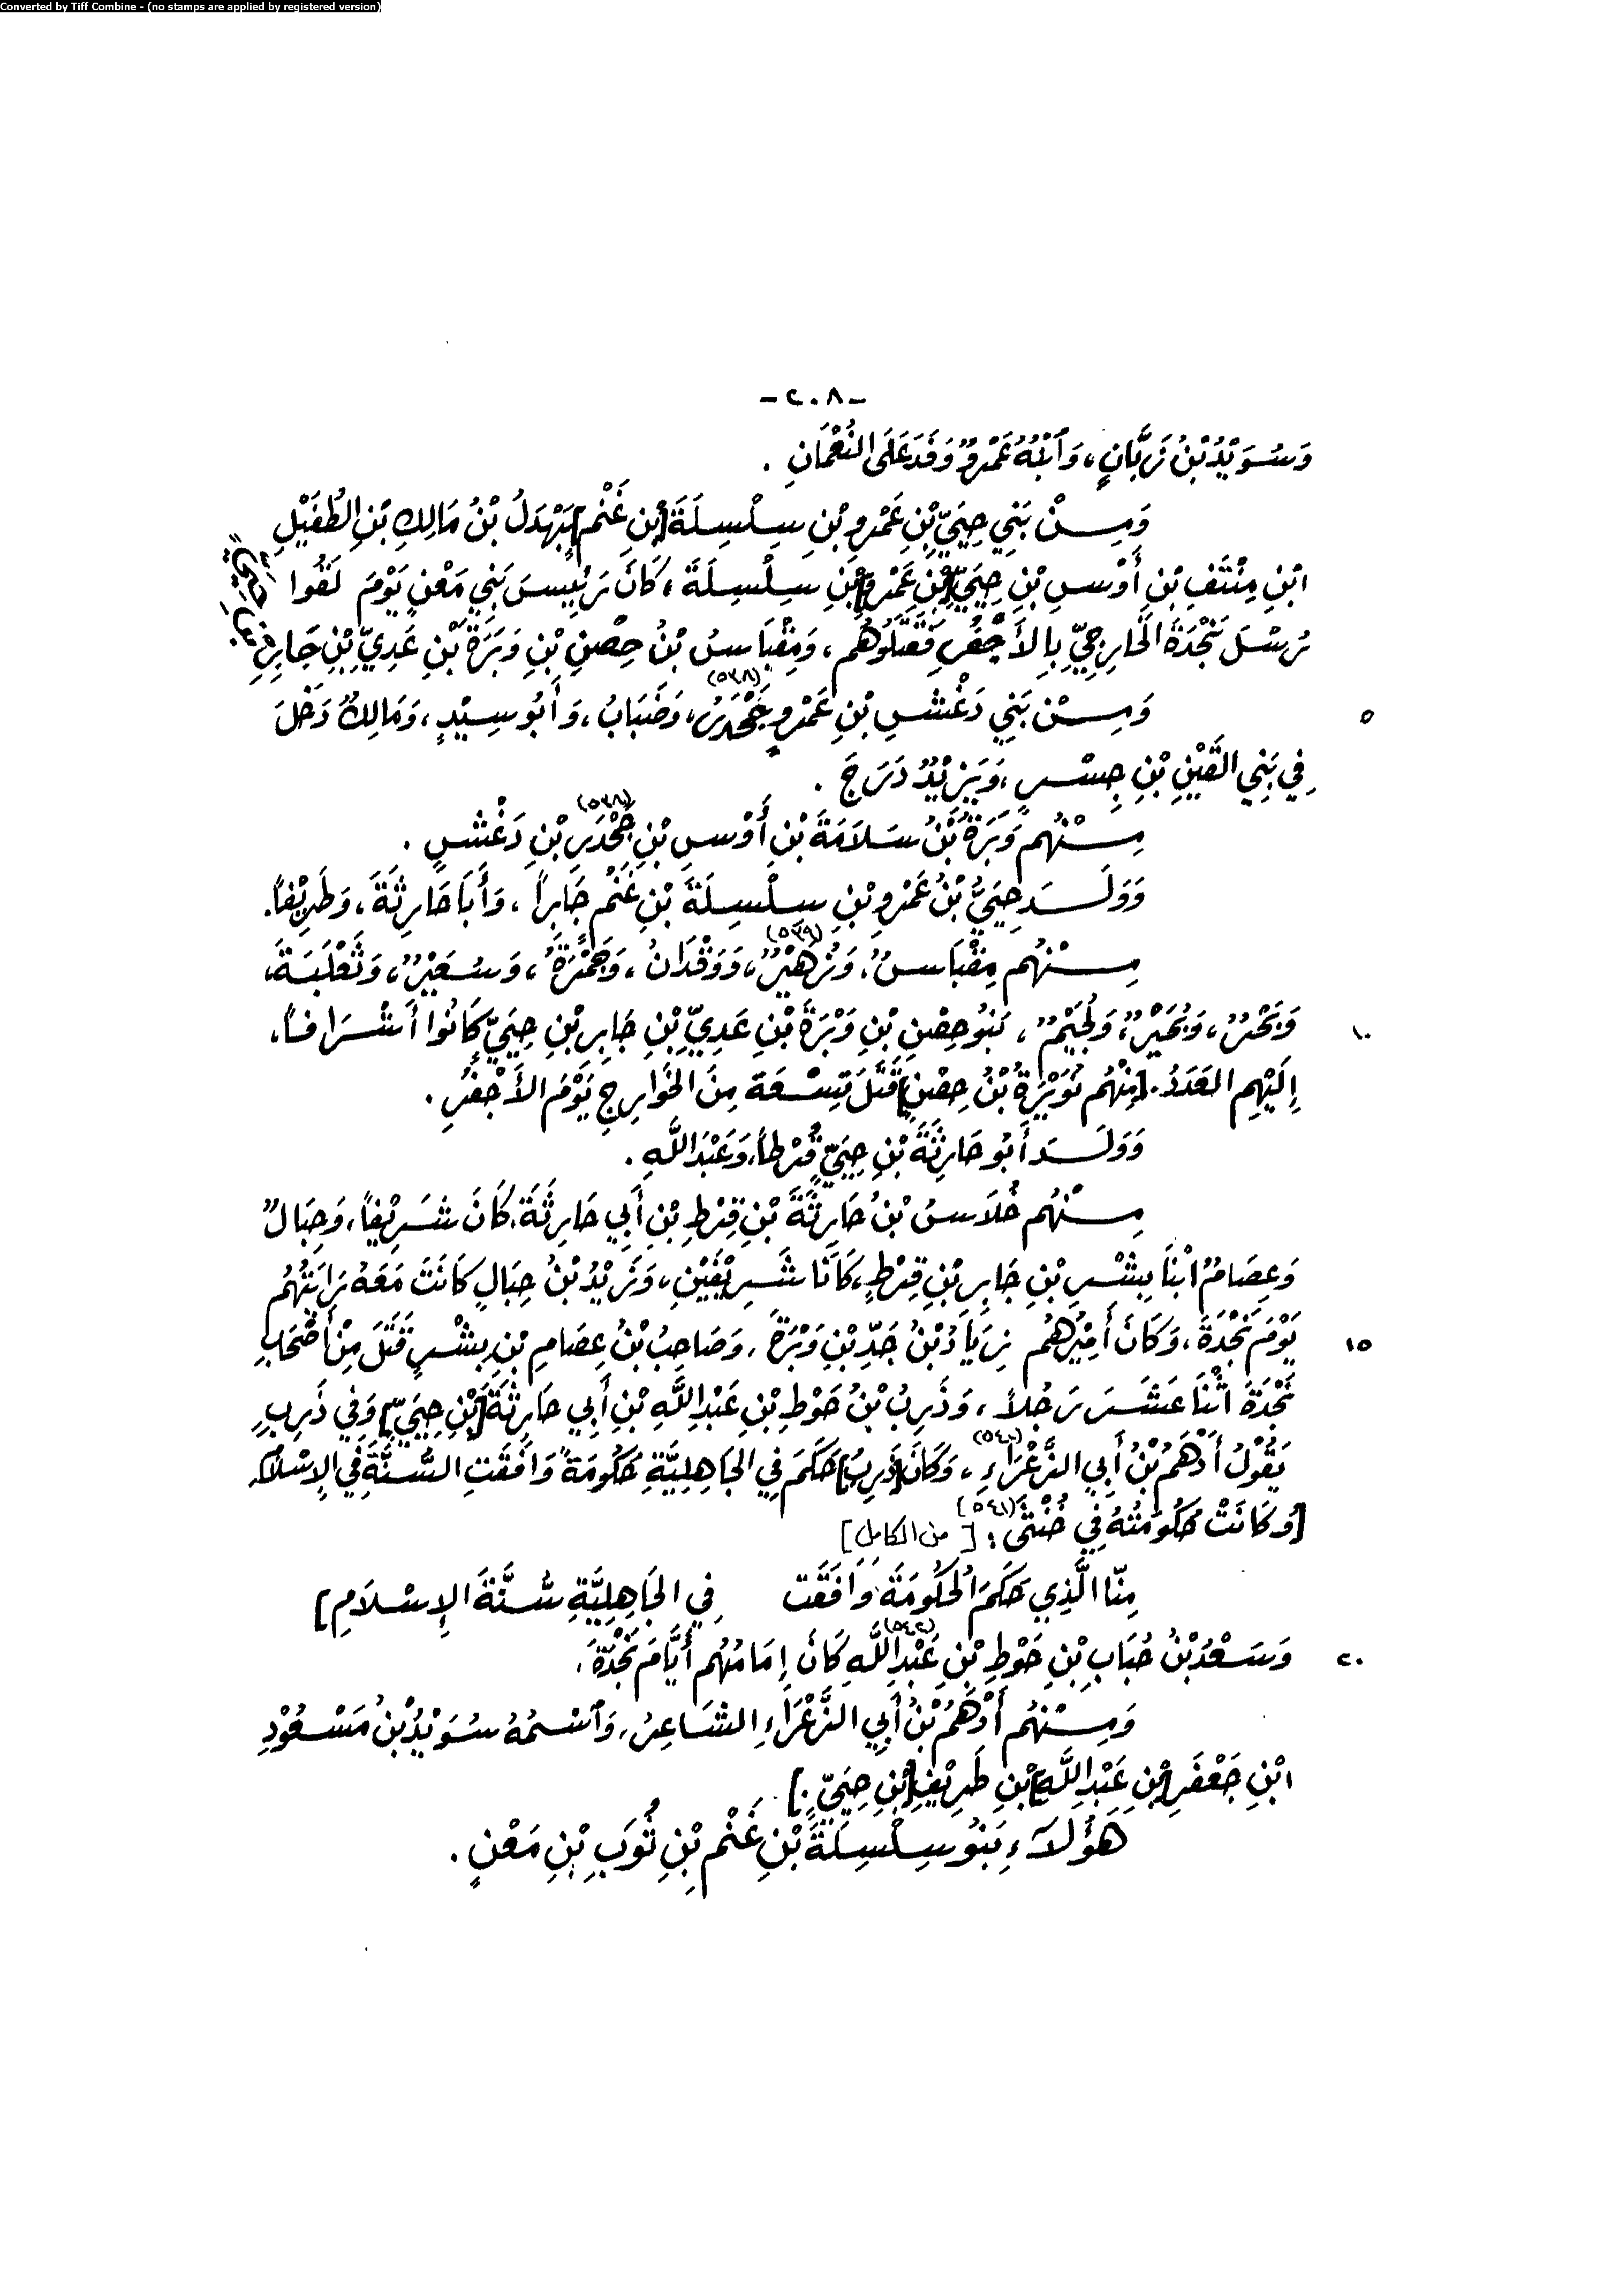 Converted by Tiff Combine - (no stamps are applied by registered version)
-٢٠٨-
وَسُوَيْدُ بْنُ زَبَّانٍ، وَٱبْنُهُ عَمْرٌو وَفَدَ عَلَى النُّعْمَانِ .
وَمِنْ بَنِي حِيَيِّ بْنِ عَمْرِو بْنِ سِلْسِلَةَ [بْنِ غَنْمٍ] بَهْدَلُ بْنُ مَالِكِ بْنِ الطُّفَيْلِ
ابْنِ مِنْتَفِ بْنِ أَوْسِ بْنِ حِيَيِّ [بْنِ عَمْرِو] بْنِ سِلْسِلَةَ، كَانَ رَئِيسَ بَنِي مَعْنٍ يَوْمَ لَقُوا
رُسْلَ نَجْدَةَ الخَارِجِيِّ بِالأَجْفُرِ فَقَتَلُوهُم، وَمِقْبَاسُ بْنُ حِصْنِ بْنِ وَبَرَةَ بْنِ عَدِيِّ بْنِ جَابِرِ
بْنِ حِيَيٍّ
٥ وَمِنْ بَنِي دَغْشِ بْنِ عَمْرٍو جَحْدَرُ، (٥٣٨) وَضَبَابُ، وَأَبُو سِيْدٍ، وَمَالِكٌ دَخَلَ
فِي بَنِي القَيْنِ بْنِ جِسْرٍ، وَيَزِيْدُ دَرَجَ .
مِنْهُم وَبَرَةُ بْنُ سَلَامَةَ بْنِ أَوْسِ بْنِ جَحْدَرِ (٥٣٨) بْنِ دَغْشٍ .
وَوَلَدَ حِيَيُّ بْنُ عَمْرِو بْنِ سِلْسِلَةَ بْنِ غَنْمٍ جَابِراً، وَأَبَا حَارِثَةَ، وَطَرِيْفاً.
مِنْهُم مِقْبَاسٌ، وَزُهَيْرٌ، (٥٣٩) وَوَقْدَانُ، وَحَمْزَةُ، وَسُعَيْرٌ، وَثَعْلَبَةُ،
١٠ وَبَحْرٌ، وَبُحَيْرٌ، وَلُجَيْمٌ، بَنُو حِصْنِ بْنِ وَبْرَةَ بْنِ عَدِيِّ بْنِ جَابِرِ بْنِ حِيَيٍّ كَانُوا أَشْرَافاً،
إِلَيْهِم العَدَدُ. [مِنْهُم نُوَيْرَةُ بْنُ حِصْنٍ] قَتَلَ تِسْعَةً مِنَ الخَوَارِجِ يَوْمَ الأَجْفُرِ .
وَوَلَدَ أَبُو حَارِثَةَ بْنِ حِيَيٍّ قُرْطاً، وَعَبْدَ اللَّهِ .
مِنْهُم خُلَاسُ بْنُ حَارِثَةَ بْنِ قِرْطِ بْنِ أَبِي حَارِثَةَ، كَانَ شَرِيْفاً، وَحِبَالٌ
وَعِصَامٌ ابْنَا بِشْرِ بْنِ جَابِرِ بْنِ قِرْطٍ، كَانَا شَرِيْفَيْنِ، وَزَيْدُ بْنُ حِبَالٍ كَانَتْ مَعَهُ رَايَتُهُم
١٥ يَوْمَ نَجْدَةَ، وَكَانَ أَمِيْرَهُم زِيَادُ بْنُ جَدِّ بْنِ وَبْرَةَ، وَصَاحِبُ بْنُ عِصَامِ بْنِ بِشْرٍ قَتَلَ مِنْ أَصْحَابِ
نَجْدَةَ اثْنَا عَشَرَ رَجُلاً، وَذَرِبُ بْنُ حَوْطِ بْنِ عَبْدِ اللَّهِ بْنِ أَبِي حَارِثَةَ [بْنِ حِيَيٍّ] وَفِي ذَرِبٍ
يَقُوْلُ أَدْهَمُ بْنُ أَبِي الزَّعْرَاءِ، (٥٤٠) وَكَانَ [ذَرِبُ] حَكَمَ فِي الجَاهِلِيَّةِ حُكُومَةً وَافَقَتِ السُّنَّةَ فِي الإِسْلَامِ
[وَكَانَتْ حُكُومَتُهُ فِي خُنْثَى: (٥٤١) [من الكامل]
مِنَّا الَّذِي حَكَمَ الحُكُومَةَ وَافَقَت فِي الجَاهِلِيَّةِ سُنَّةَ الإِسْلَامِ]
٢٠ وَسَعْدُ بْنُ حُبَابِ بْنِ حَوْطِ بْنِ عَبْدِ اللَّهِ (٥٤٢) كَانَ إِمَامُهُم أَيَّامَ نَجْدَةَ.
وَمِنْهُم أَدْهَمُ بْنُ أَبِي الزَّعْرَاءِ الشَّاعِرُ، وَٱسْمُهُ سُوَيْدُ بْنُ مَسْعُوْدِ
ابْنِ جَعْفَرِ [بْنِ عَبْدِ اللَّهِ] بْنِ طَرِيْفِ [بْنِ حِيَيٍّ.]
هَؤُلَاءِ بَنُو سِلْسِلَةَ بْنِ غَنْمِ بْنِ ثُوَبِ بْنِ مَعْنٍ .